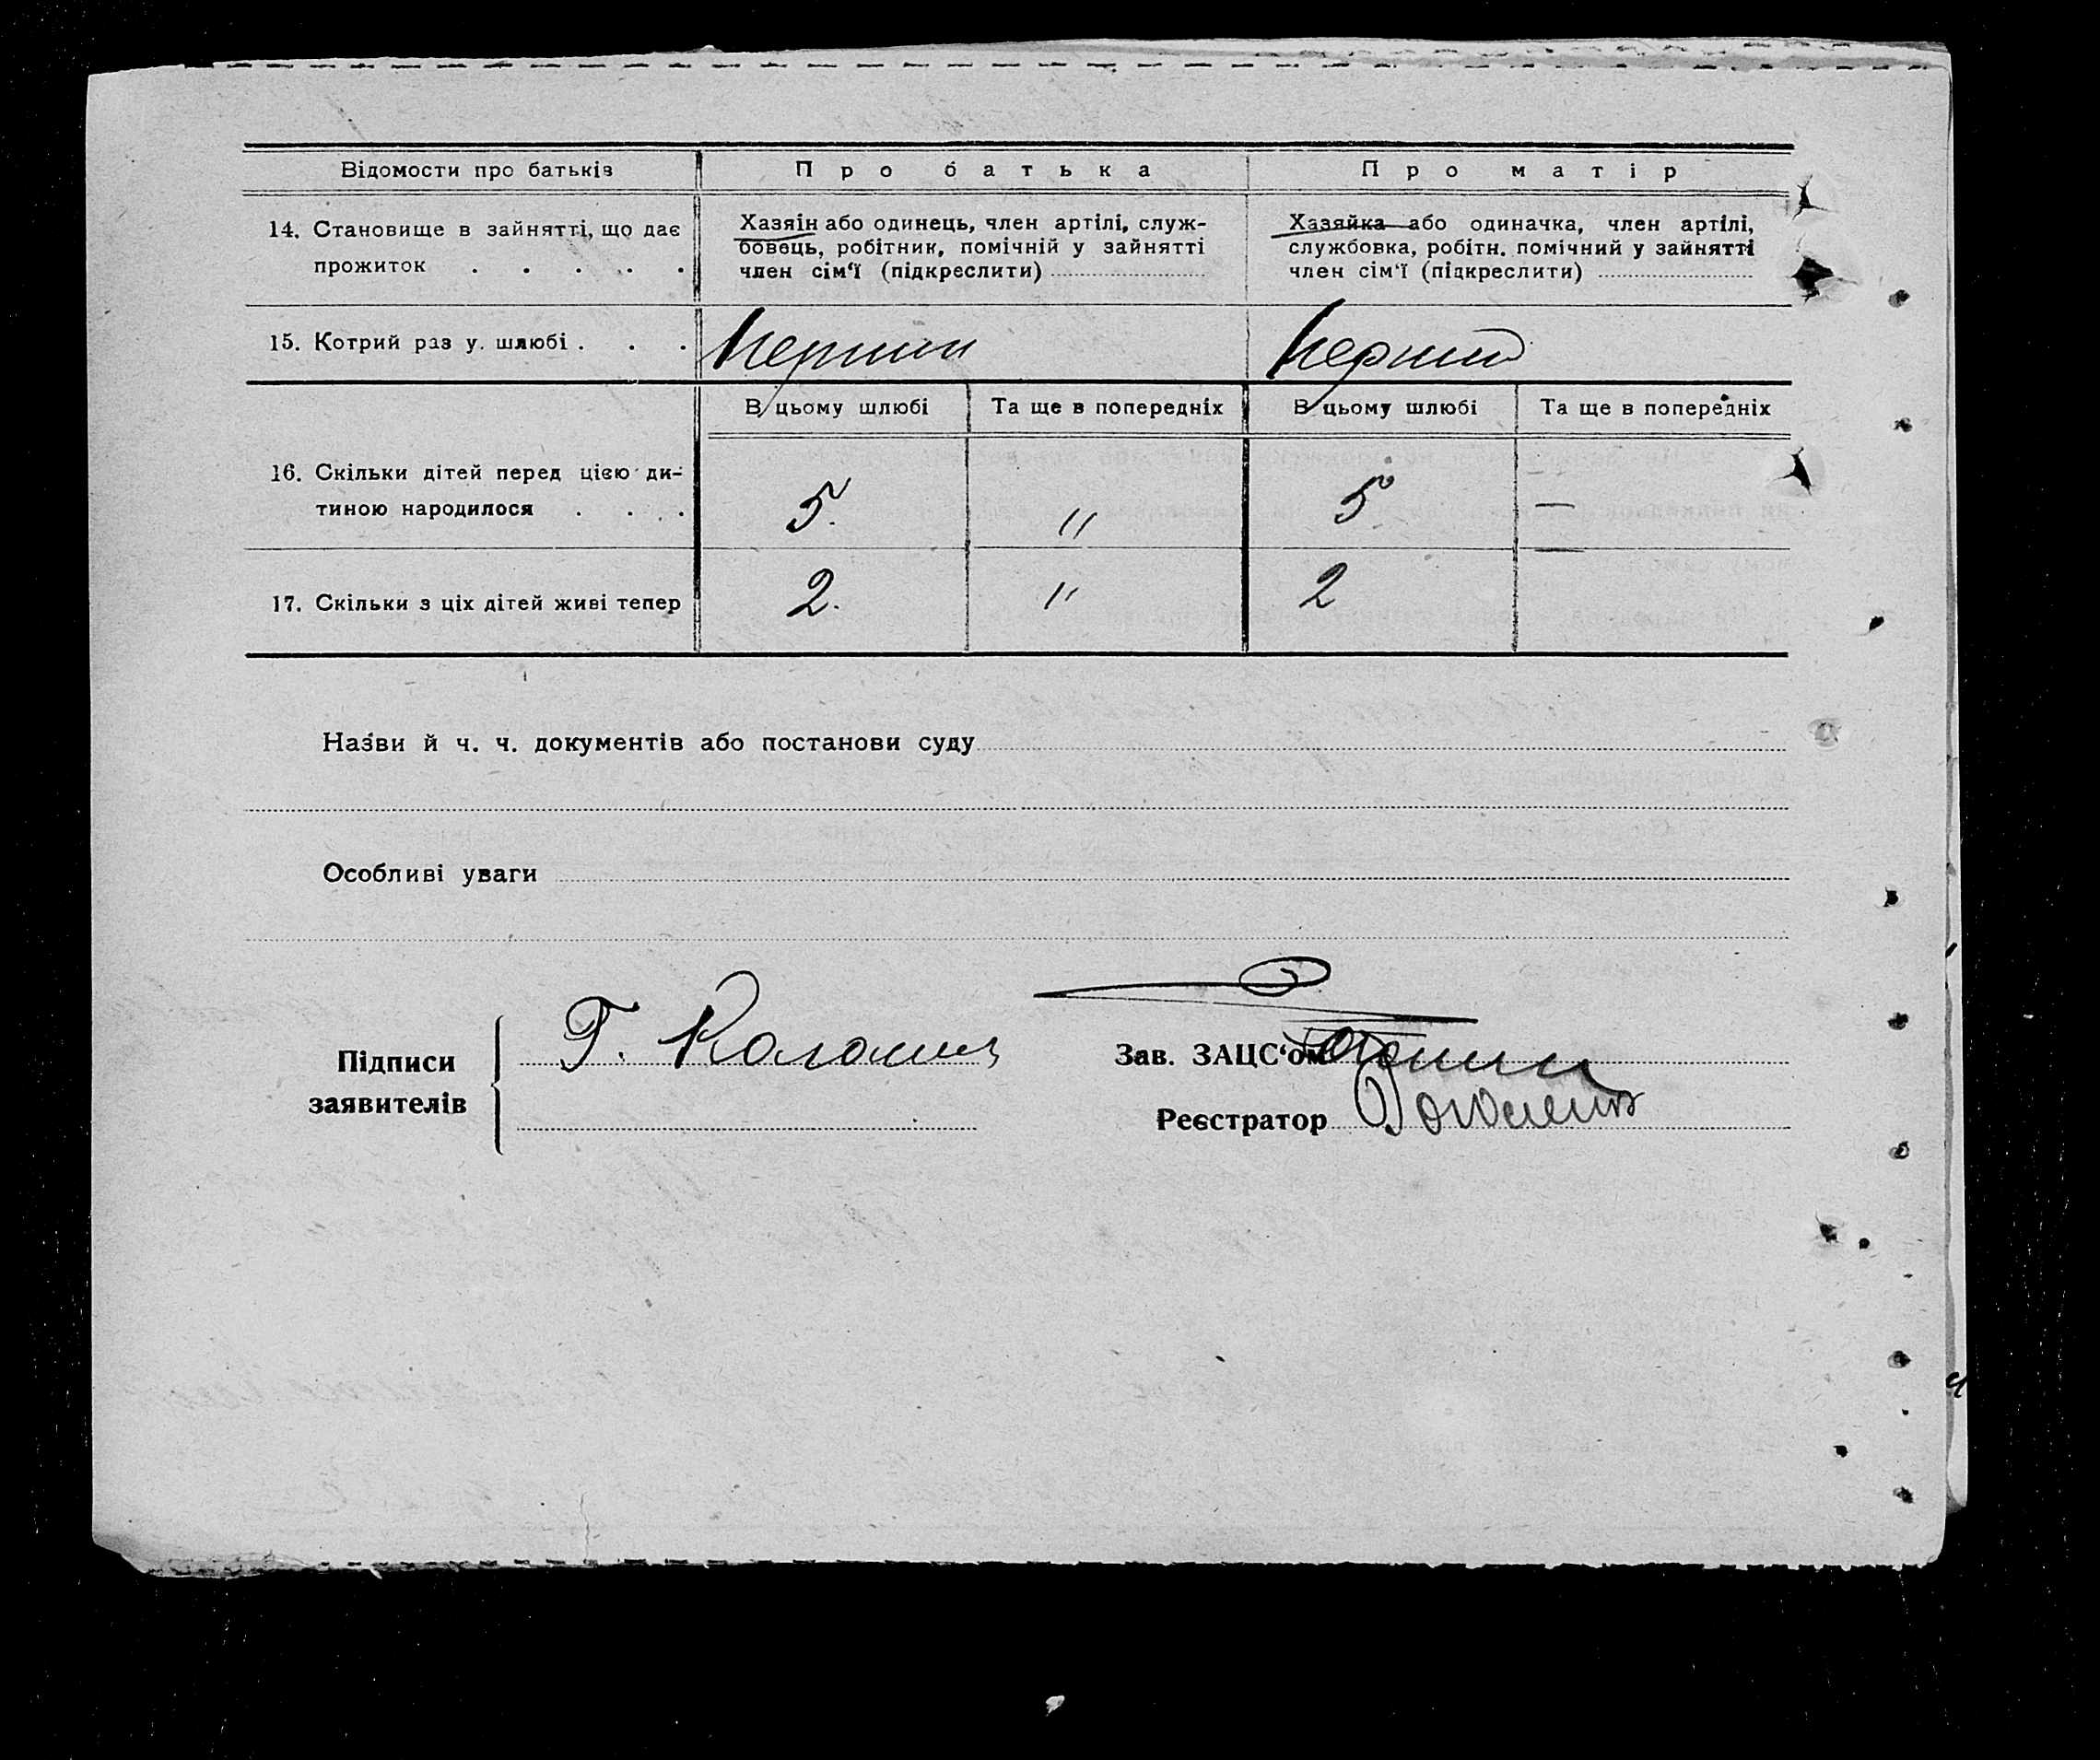 Відомости про батьків
Про батька
Про матір
14. Становище в зайнятті, що дає
прожиток . . . . .
Хазяін або одинець, член артілі, служ-
бовець, робітник, помічній у зайнятті
член сім‘ї (підкреслити)
Хазяйка або одиначка, член артілі,
службовка, робітн. помічний у зайнятті
член сім‘ї (підкреслити)
15. Котрий раз у. шлюбі . . .
Перший
Перший
В цьому шлюбі
Та ще в попередніх
В цьому шлюбі
Та ще в попередніх
16. Скільки дітей перед цією ди-
тиною народилося . . .
5.
"
5
—
17. Скільки з ціх дітей живі тепер
2.
"
2
Назви й ч. ч. документів або постанови суду
Особливі уваги
Підписи
заявителів
Г.
Зав. ЗАЦС‘ом
Реєстратор